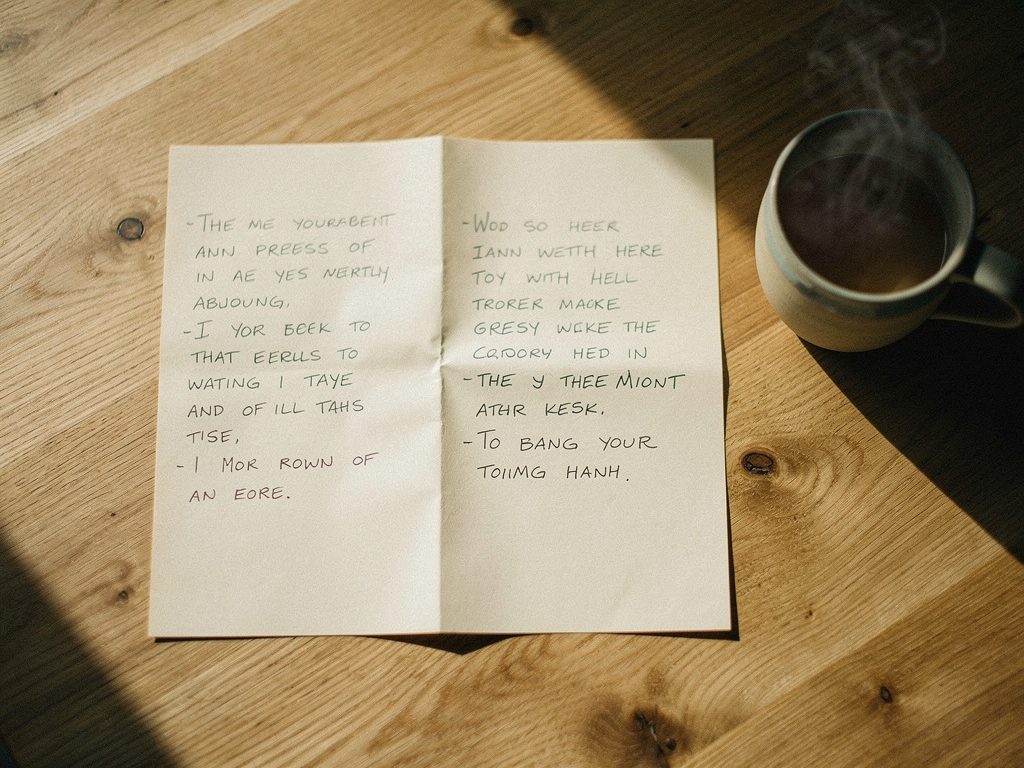 - THE ME YOURABENT
ANN PREESS OF
IN AE YES NERTLY
ABJOUNG,
- I YOR BEEK TO
THAT EERLLS TO
WATING I TAYE
AND OF ILL TAHS
TISE,
- I MOR ROWN OF
AN EORE.
- WOD SO HEER
IANN WETTH HERE
TOY WITH HELL
TRORER MACKE
GRESY WCKE THE
HED IN
- THE Y THEE MIONT
ATHR KESK.
- TO BANG YOUR
TOIIMG HANH.